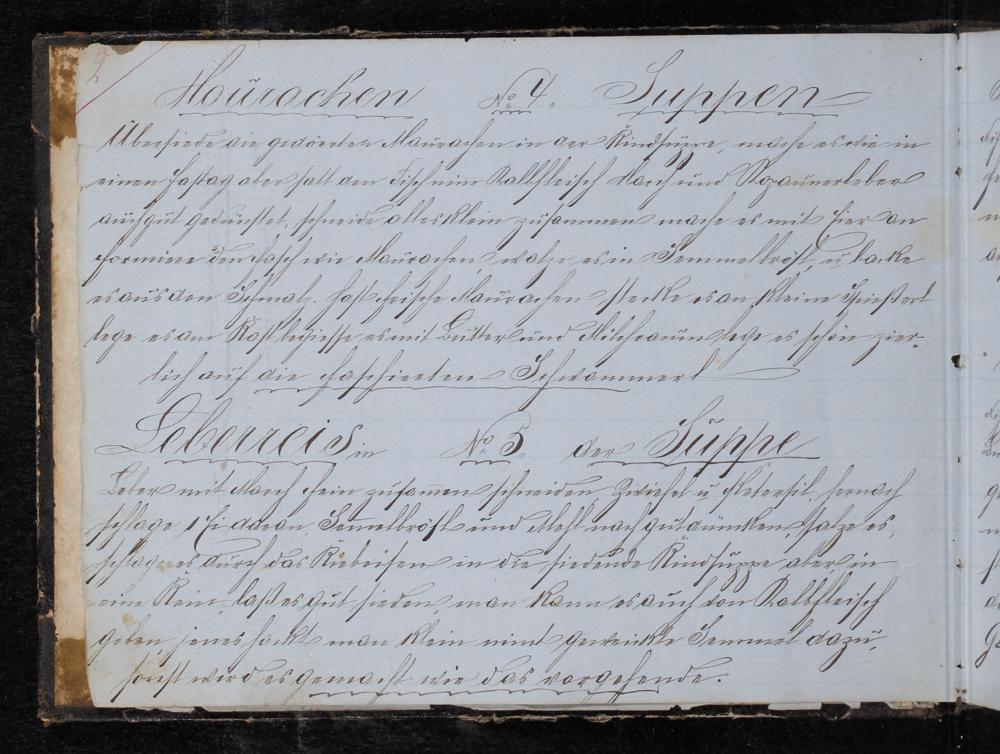 2
Maurachen No 4. Suppen
Übersiede die gedörrten Maurachen in der Rindsuppe, mache es wie in
einen Faßtag aber statt den Fisch nim Kalbfleisch March und Kapaunerleber
auf gut gedünstet, schneide alles klein zusammen mache es mit Eier an
formiere den Fasch wie Maurachen, walze es in Semmelbrösl, u. backe
es aus den Schmalz. Hast frische Maurachen stecke es an kleine Spießerl
lege es am Rost begiesse es mit Butter und Milchraum lege es schön zier-
lich auf die faschierten Schwammerl
Leberreis in No 5. der Suppe
Leber mit March fein zusammen schneiden, Zwiefel u Petersil, hernach
schlage 1 Ei daran, Semmelbrösl und Mehl nach gutdünken, salze es,
schlage es durch das Riebeisen in die siedende Rindsuppe aber in
eine Rein, laß es gut sieden, man kann es auch von Kalbfleisch
geben, jenes hackt man klein nimt geweickte Semmel dazu,
sonst wird es gemacht wie das vorgehende.